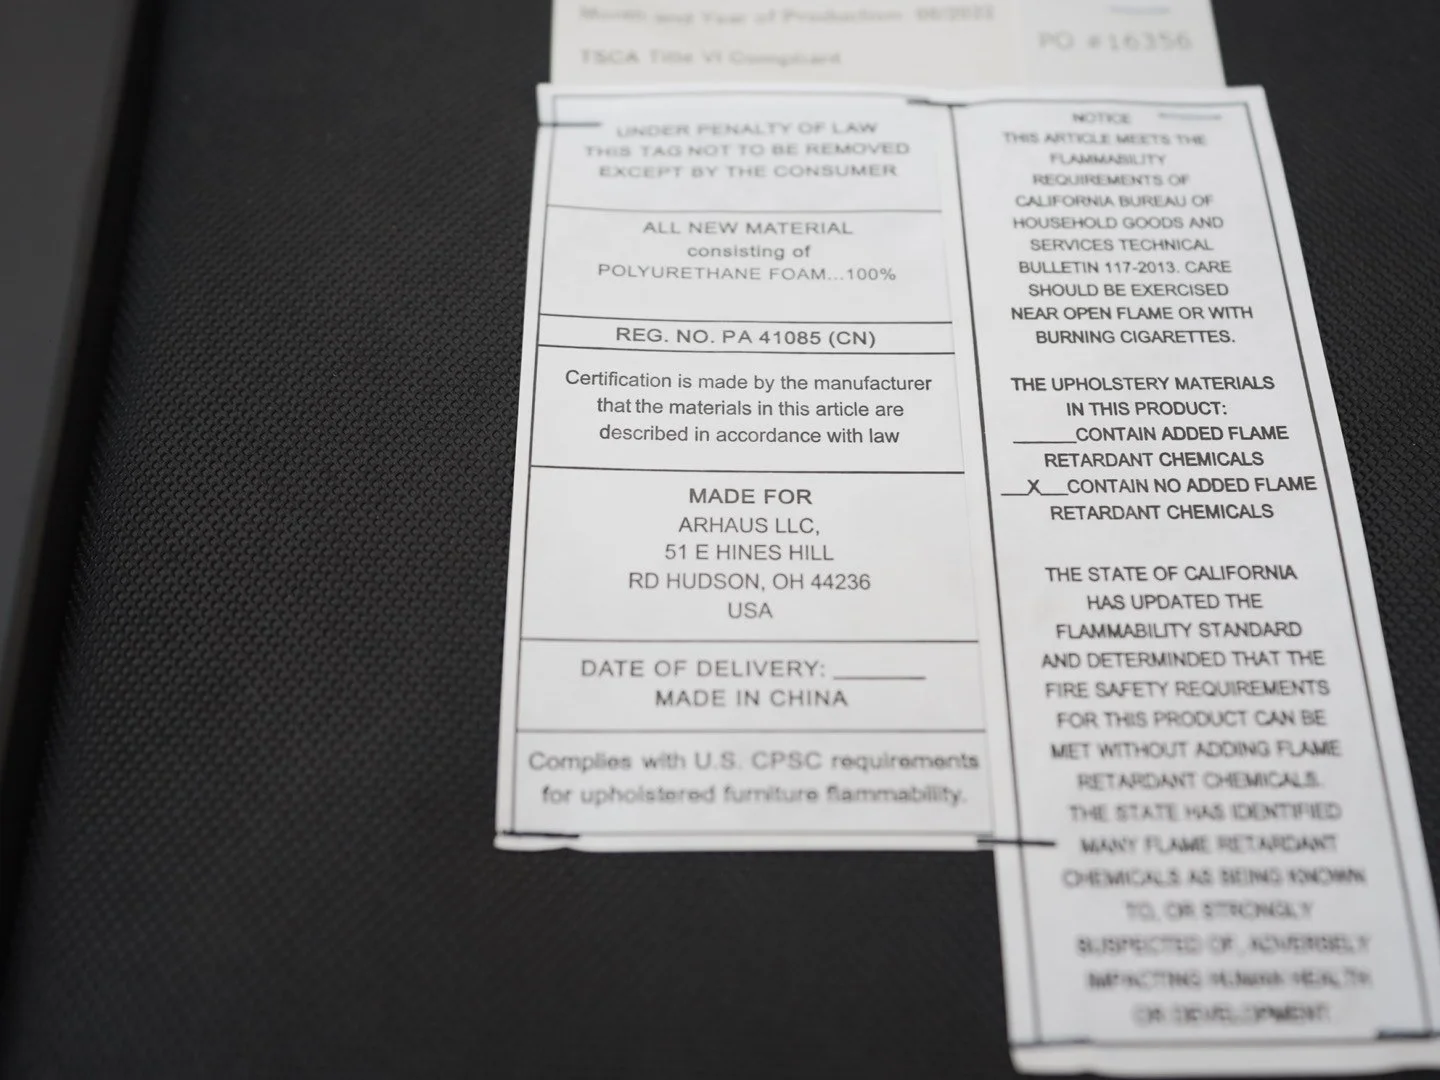 Month and Year of Production 06/2022
PO #16356
TSCA Title VI Compliant
UNDER PENALTY OF LAW
THIS TAG NOT TO BE REMOVED
EXCEPT BY THE CONSUMER
ALL NEW MATERIAL
consisting of
POLYURETHANE FOAM...100%
REG. NO. PA 41085 (CN)
Certification is made by the manufacturer
that the materials in this article are
described in accordance with law
MADE FOR
ARHAUS LLC,
51 E HINES HILL
RD HUDSON, OH 44236
USA
DATE OF DELIVERY: ______
MADE IN CHINA
Complies with U.S. CPSC requirements
for upholstered furniture flammability.
NOTICE
THIS ARTICLE MEETS THE
FLAMMABILITY
REQUIREMENTS OF
CALIFORNIA BUREAU OF
HOUSEHOLD GOODS AND
SERVICES TECHNICAL
BULLETIN 117-2013. CARE
SHOULD BE EXERCISED
NEAR OPEN FLAME OR WITH
BURNING CIGARETTES.
THE UPHOLSTERY MATERIALS
IN THIS PRODUCT:
_____CONTAIN ADDED FLAME
RETARDANT CHEMICALS
__X__CONTAIN NO ADDED FLAME
RETARDANT CHEMICALS
THE STATE OF CALIFORNIA
HAS UPDATED THE
FLAMMABILITY STANDARD
AND DETERMINDED THAT THE
FIRE SAFETY REQUIREMENTS
FOR THIS PRODUCT CAN BE
MET WITHOUT ADDING FLAME
RETARDANT CHEMICALS.
THE STATE HAS IDENTIFIED
MANY FLAME RETARDANT
CHEMICALS AS BEING KNOWN
TO, OR STRONGLY
SUSPECTED OF, ADVERSELY
IMPACTING HUMAN HEALTH
OR DEVELOPMENT.